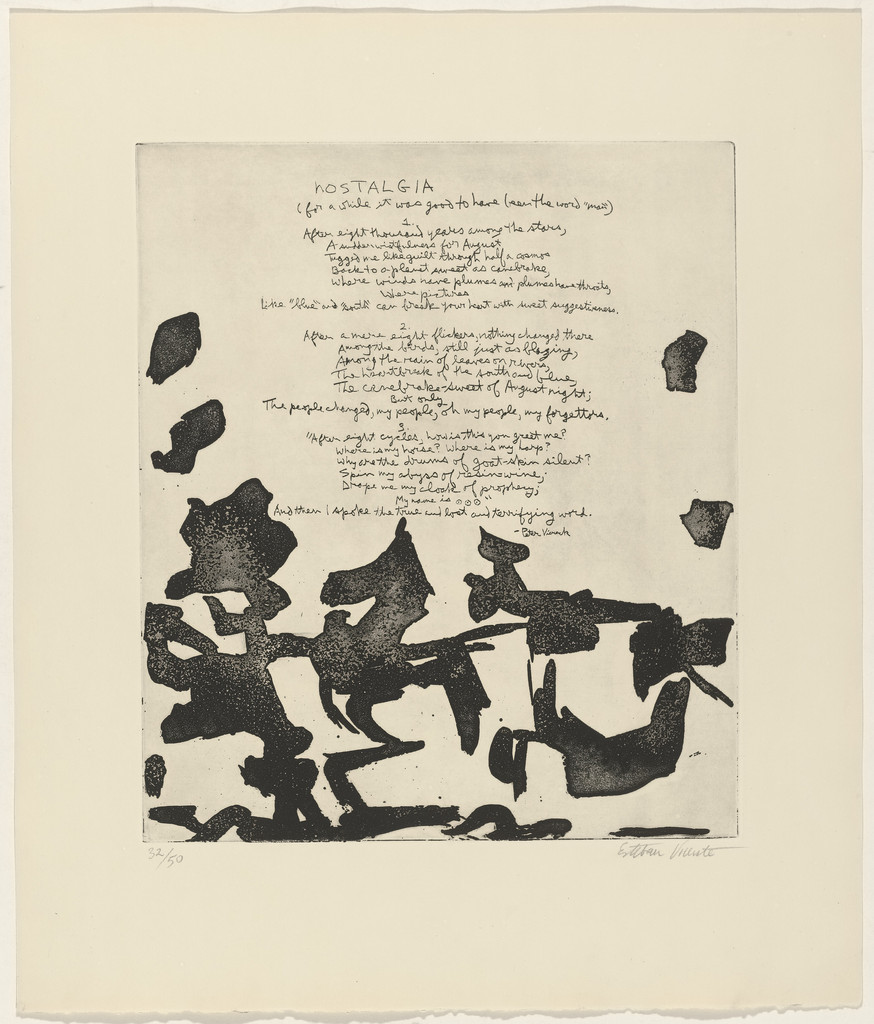 NOSTALGIA
(for a while it was good to have been the word "man")
1.
After eight thousand years among the stars,
A sudden wistfulness for August
Tugged me like guilt through half a cosmos
Back to a planet sweet as canebrake,
Where winds have plumes and plumes have throats,
Where pictures
Like "blue" and "south" can break your heart with sweet suggestiveness.
2.
After a mere eight flickers, nothing changed there
Among the birds, still just as blazing,
Among the rain of leaves on rivers,
The heartbreak of the south and blue,
The canebrake-sweet of August night;
But only
The people changed, my people, oh my people, my forgettors.
3.
"After eight cycles, how is this you greet me?
Where is my horse? Where is my harp?
Why are the drums of goat-skin silent?
Spin my abyss of resin-wine;
Drape me my cloak of prophecy;
My name is ooo"
And then I spoke the true and lost and terrifying word.
- Peter Viereck
32/50
Esteban Vicente